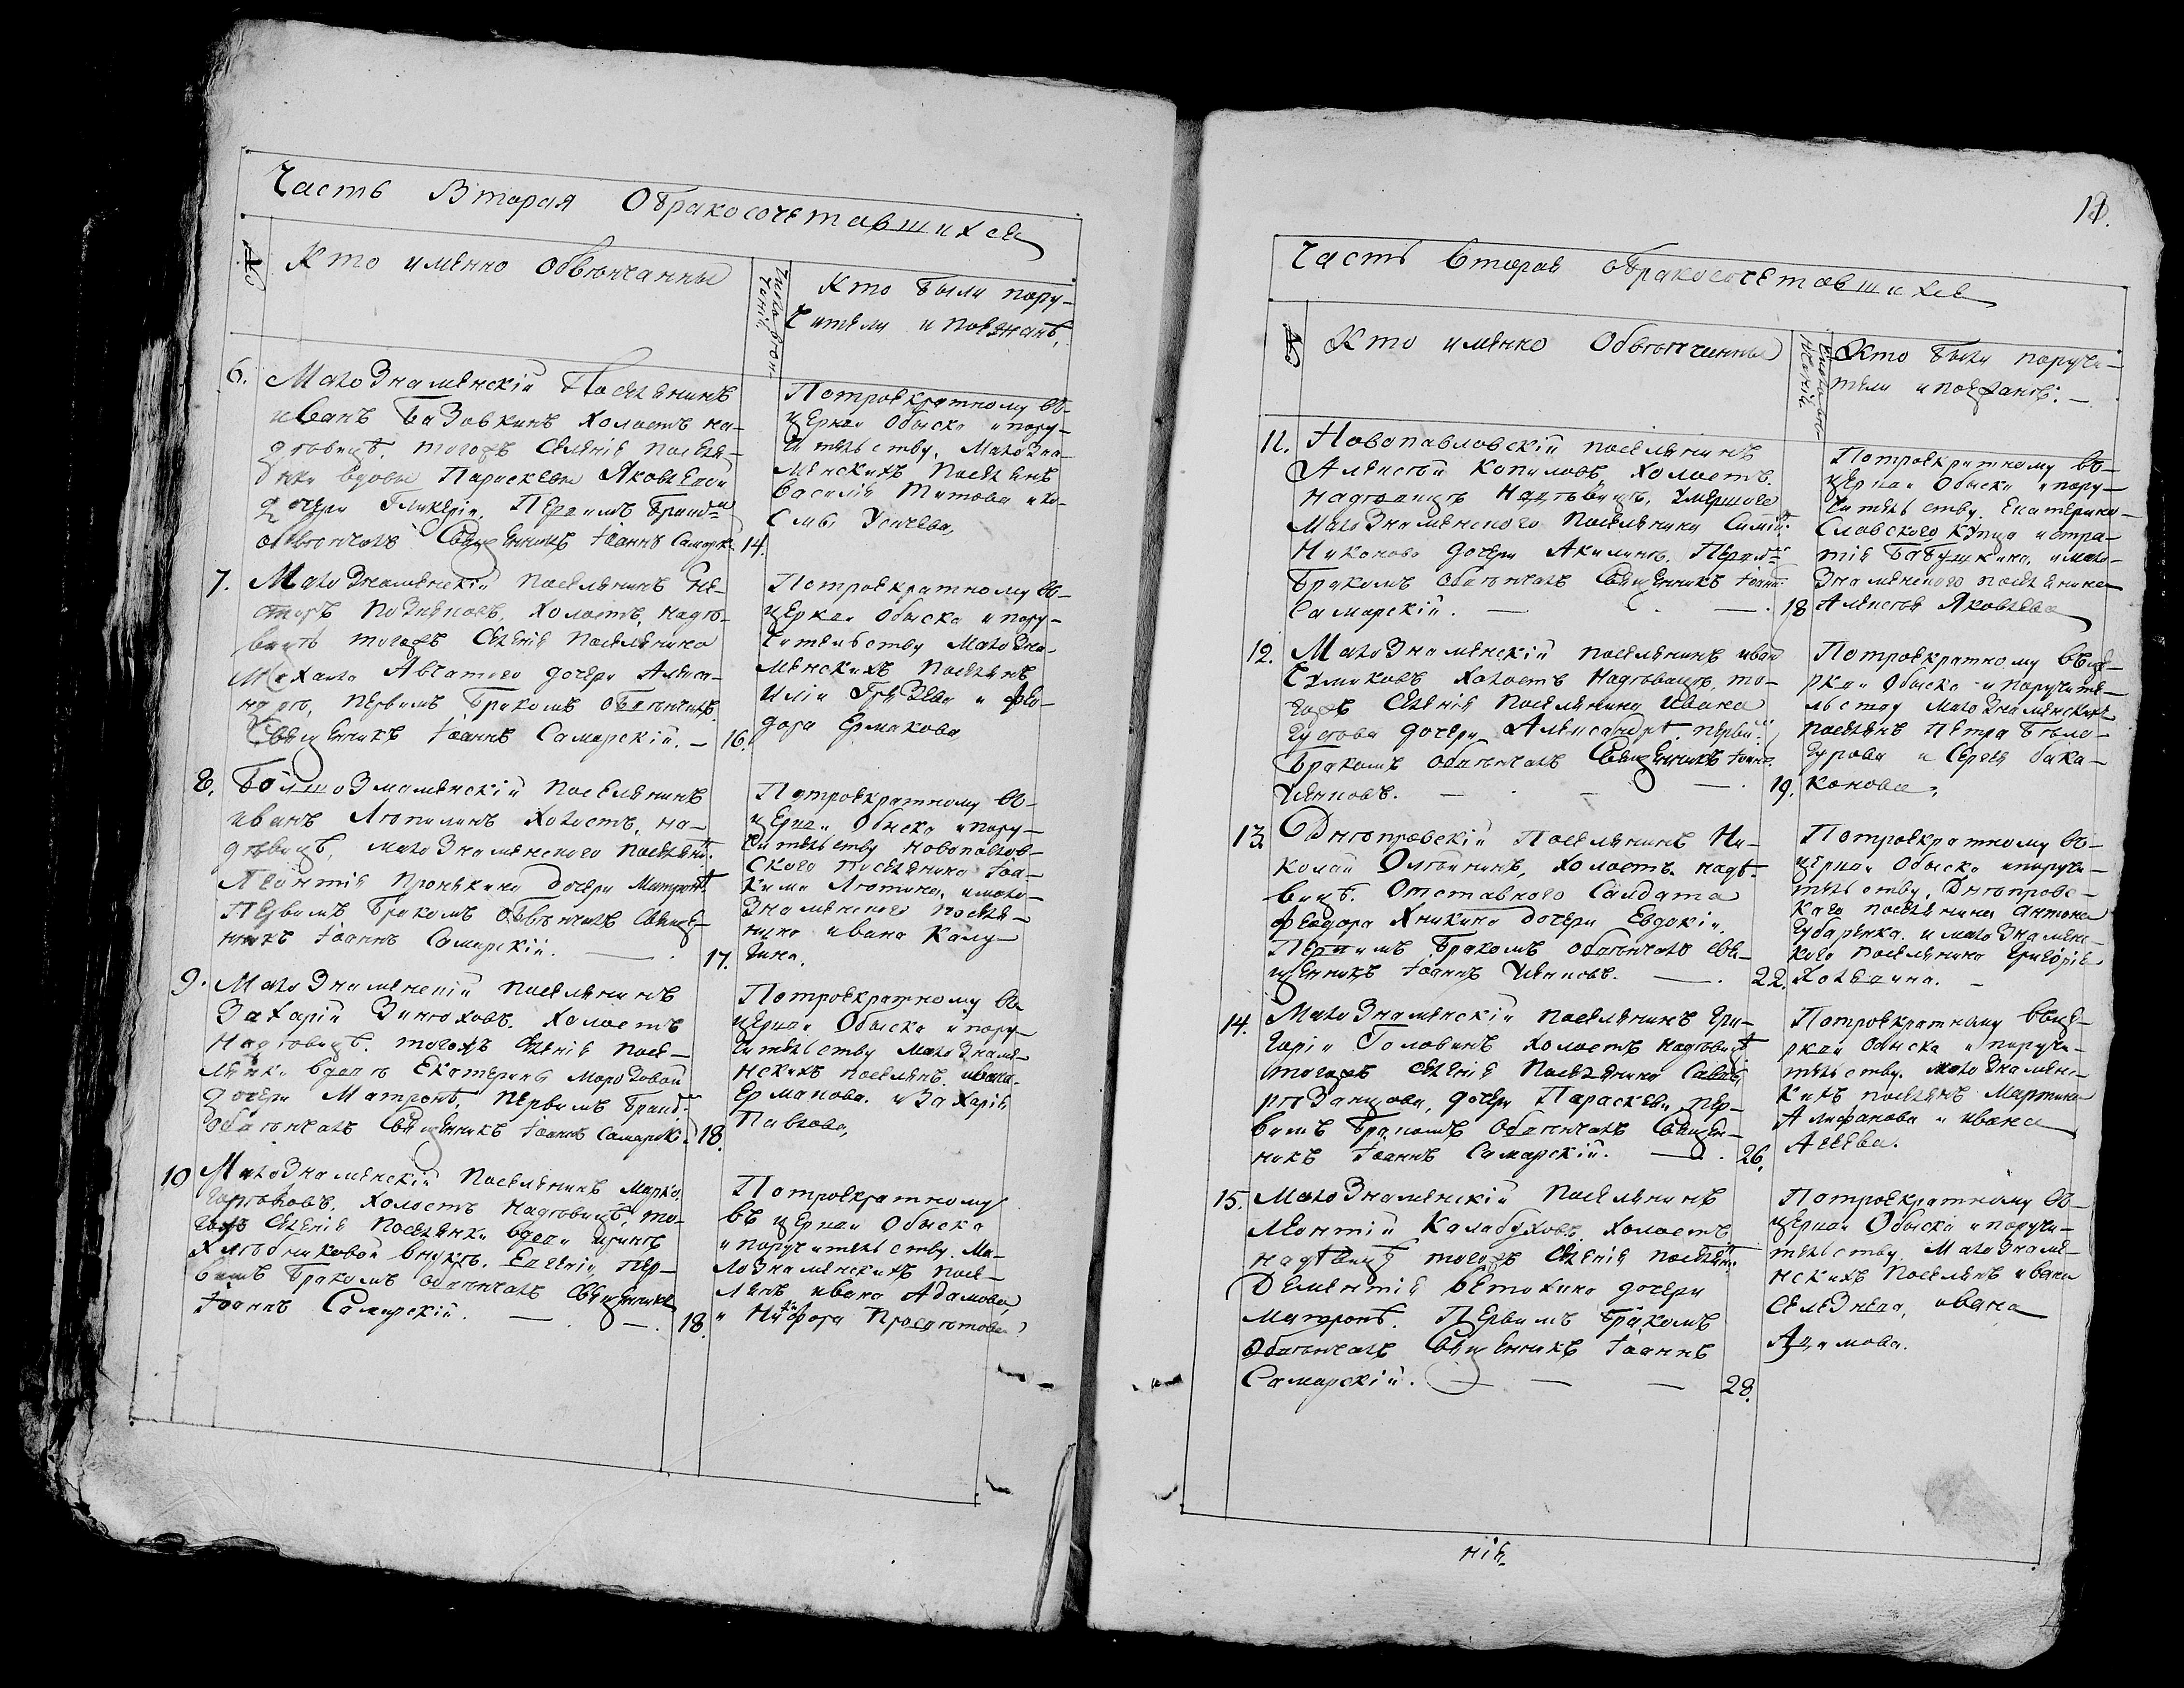 Часть Вторая Обракосочетавшихся
№
Кто именно обвѣнчанны
Кто были пору-
чители и поезжанѣ,
6. Мало Знаменскій Поселянинъ
иванъ Базовкинъ холостъ на-
дѣвицѣ, тогожъ Селенія поселя-
нки вдовы Параскевы Яковлевой
дочери Гликеріи, Первымъ Брако
обвѣнчалъ Священникъ Іоаннъ Самарск. 14.
Потроекратному во-
церкви Обыску и пору-
чительству, МалоЗна-
менскихъ Поселянъ
Василія Титова и ко-
смы Усачева,
7. МалоЗнаменскій поселянинъ Не-
сторъ Позняковъ, холостъ, надѣ-
вицѣ тогожъ Селенія Поселянина
Михаила дочери Алекса-
ндрѣ, первымъ Бракомъ Обвѣнчалъ
Священникъ Іоаннъ Самарскій. — 16.
Потроекратному во-
церкви Обыску и пору-
чительству МалоЗна-
менскихъ Поселянъ
Иліи и Фео-
дора Ермакова,
8. БолшоЗнаменскій Поселянинъ
иванъ Лопилинъ Холостъ, на-
дѣвицѣ, малоЗнаменского Поселяни:
Леонтія Пронякина дочери Матронѣ.
Первымъ Бракомъ Обвѣнчалъ Священ-
никъ Іоаннъ Самарскій. — 17.
Потроекратному во-
церкви Обыску и пору-
чительству Новопавлов-
ского поселянина Іоа-
кима Лютина, и мало-
Знаменского поселя-
нина ивана Калу-
гина.
9. МалоЗнаменскій поселянинъ
Захарій Холостъ
Надѣвицѣ. тогожъ Селенія посе-
лянки вдовы Екатерины Морозовой
дочери Матронѣ, первымъ Брако:
обвѣнчалъ Священникъ Іоаннъ Самарск: 18.
Потроекратному во
церкви Обыску и пору-
чительству МалоЗнаме-
нскихъ поселянъ. ивана
Ермакова. и Захарія
Павлова,
10 МалоЗнаменскій Поселянинъ Марко
Горюковъ. холостъ Надѣвицѣ, то-
гожъ Селенія Поселянки вдовы ирины
Хлѣбниковой внукѣ. Евгеніи, пер-
вымъ Бракомъ обвѣнчалъ Священникъ
Іоаннъ Самарскій. — 18.
Потроекратному
въ церкви Обыску
и поручительству. Ма-
лоЗнаменскихъ посе-
лянъ ивана Адамова,
и Никифора Просвѣтова
Часть вторая обракосочетавшихся
№
Кто именно Обвѣнчанны
Кто были поручи-
тели и поезжанѣ: —
11. Новопавловскій поселянинъ
Алексѣй Копиловъ, холостъ.
надѣвицѣ Надѣвицѣ, умершаго
МалоЗнаменского Поселянина
Никонова дочери Акилинѣ, Первы:
Бракомъ Обвѣнчалъ Священникъ Іоан:
Самарскій. — 18
Потроекратному во-
церкви Обыску и пору-
чительству. Екатерино-
Славского купца истра-
тія Бабушкина, и мало-
Знаменского поселянина
Алексѣя Яковлева
12. МалоЗнаменскій поселянинъ иван
Сумаковъ Холостъ Надѣвицѣ, то-
гожъ Селенія Поселянина ивана
Гусова дочери Александрѣ. первы:
Бракомъ Обвѣнчалъ Священникъ Іоан:
Ивановъ. — 19.
Потроекратному въце-
ркви Обыску и поручите-
льству МалоЗнаменскихъ
Поселянъ Петра Бело-
гурова и Сергія бака-
Конова,
13. Днѣпровскій Поселянинъ Ни-
колай Олѣйникъ, холостъ. надѣ-
вицѣ. Отставного Салдата
Феодора Аникина дочери Евдокіи.
Первымъ Бракомъ обвѣнчалъ Свя-
щенникъ Іоаннъ Ивановъ. — 22.
Потроекратному во-
церкви Обыску и поручи-
тельству, Днѣпровс-
каго поселянина антона
Губаренка. и малоЗнаменс-
каго Поселянина григорія
14. МалоЗнаменскій поселянинъ гри-
горій Головинъ холостъ надѣвицѣ
тогожъ Селенія Поселянина
Рязанцова, дочери Параскеви, пер-
вымъ Бракомъ Обвѣнчалъ Священ-
никъ Іоаннъ Самарскій. — 26.
Потроекратному въце-
ркви Обыску и поручи-
тельству. МалоЗнаменс-
кихъ поселянъ Мартина
Алифанова и ивана
Агеева.
15. МалоЗнаменскій Поселянинъ
Леонтій Калабуховъ холостъ
надѣвицѣ тогожъ Селенія поселян:
Дементія Ветохина дочери
Матронѣ. Первымъ Бракомъ
Обвѣнчалъ Священникъ Іоаннъ
Самарскій. — — — 28.
Потроекратному во-
церкви Обыску и поручи-
тельству. МалоЗнаме-
нскихъ Поселянъ ивана
Селезнева, ивана
Адамова.
нія